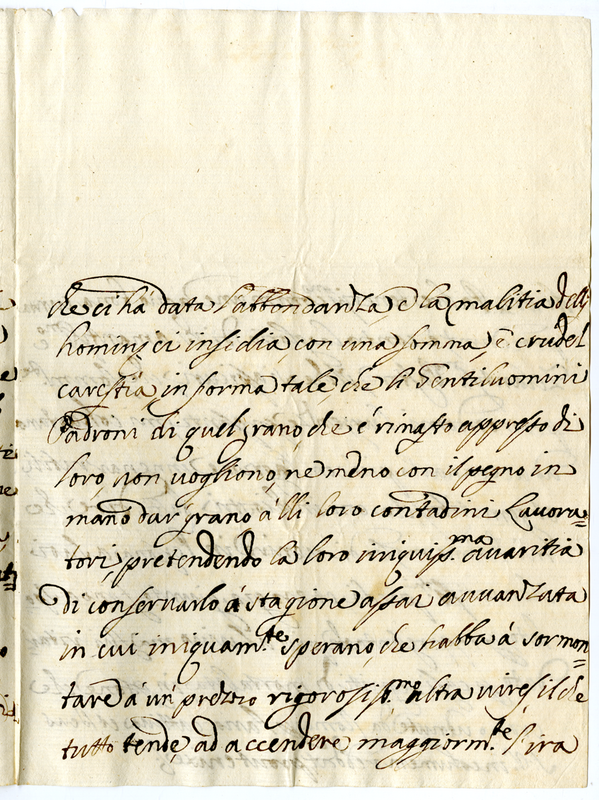 che ci hà data l'abbondanza, e la malitia delli
homini ci insidia con una somma, e crudel
carestia in forma tale, che li Gentiluomini
Padroni di quel grano, che è rimasto appresso di
loro, non vogliono, ne meno con il pegno in
mano dar grano alli loro contadini Lavora=
tori, pretendendo la loro iniquiss.ma avaritia
di conservarlo à stagione assai avvanzata
in cui iniquam.te sperano, che habba à sormon=
tare à un prezzo rigorosiss.mo ultra vires il che
tutto tende, ad accendere maggiorm.te l'ira